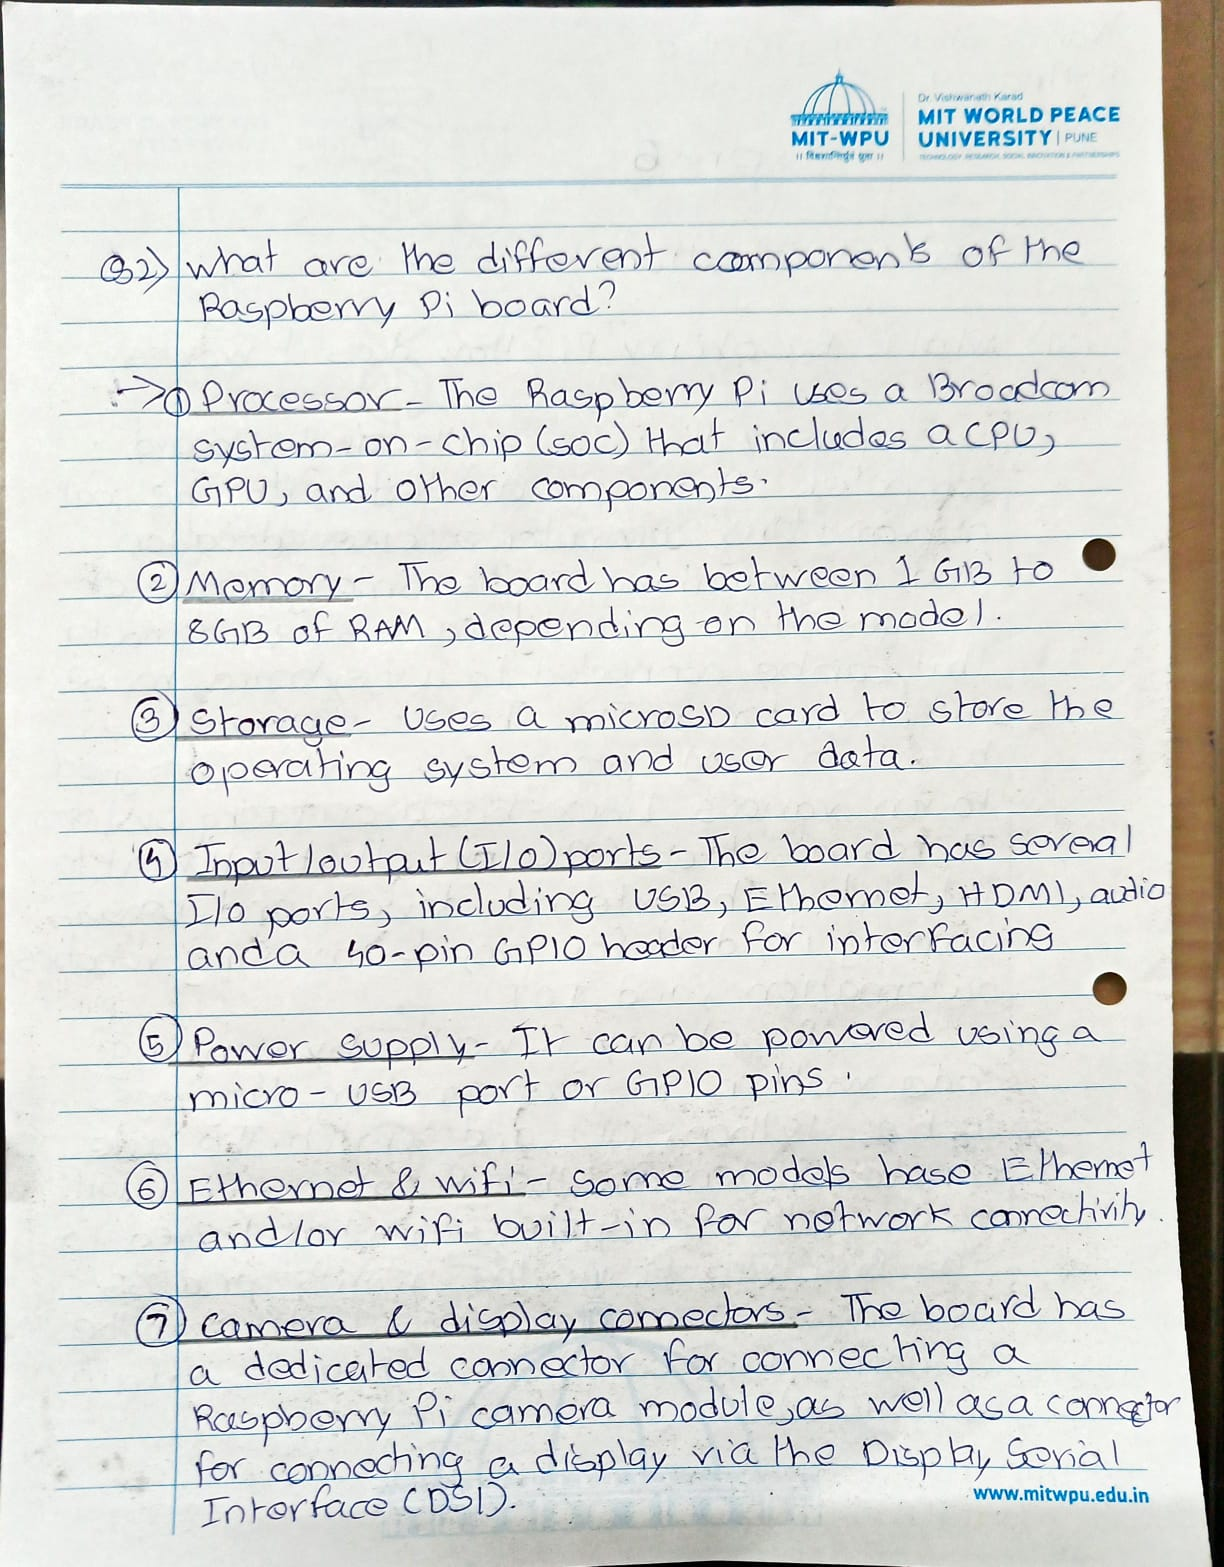 Dr. Vishwanath Karad
MIT WORLD PEACE
UNIVERSITY | PUNE
TECHNOLOGY, RESEARCH, SOCIAL INNOVATION & PARTNERSHIPS
MIT-WPU
Q2) What are the different components of the
Raspberry Pi board?
→ ① Processor - The Raspberry Pi uses a Broadcom
system-on-chip (SOC) that includes a CPU,
GPU, and other components.
② Memory - The board has between 1 GB to
8GB of RAM, depending on the model.
③ Storage - Uses a microSD card to store the
operating system and user data.
④ Input/output (I/O) ports - The board has several
I/O ports, including USB, Ethernet, HDMI, audio
and a 40-pin GPIO header for interfacing
⑤ Power supply - It can be powered using a
micro-USB port or GPIO pins.
⑥ Ethernet & wifi - Some models hase Ethernet
and/or wifi built-in for network connectivity.
⑦ Camera & display connectors - The board has
a dedicated connector for connecting a
Raspberry Pi camera module, as well as a connector
for connecting a display via the Display Serial
Interface (DSI).
www.mitwpu.edu.in